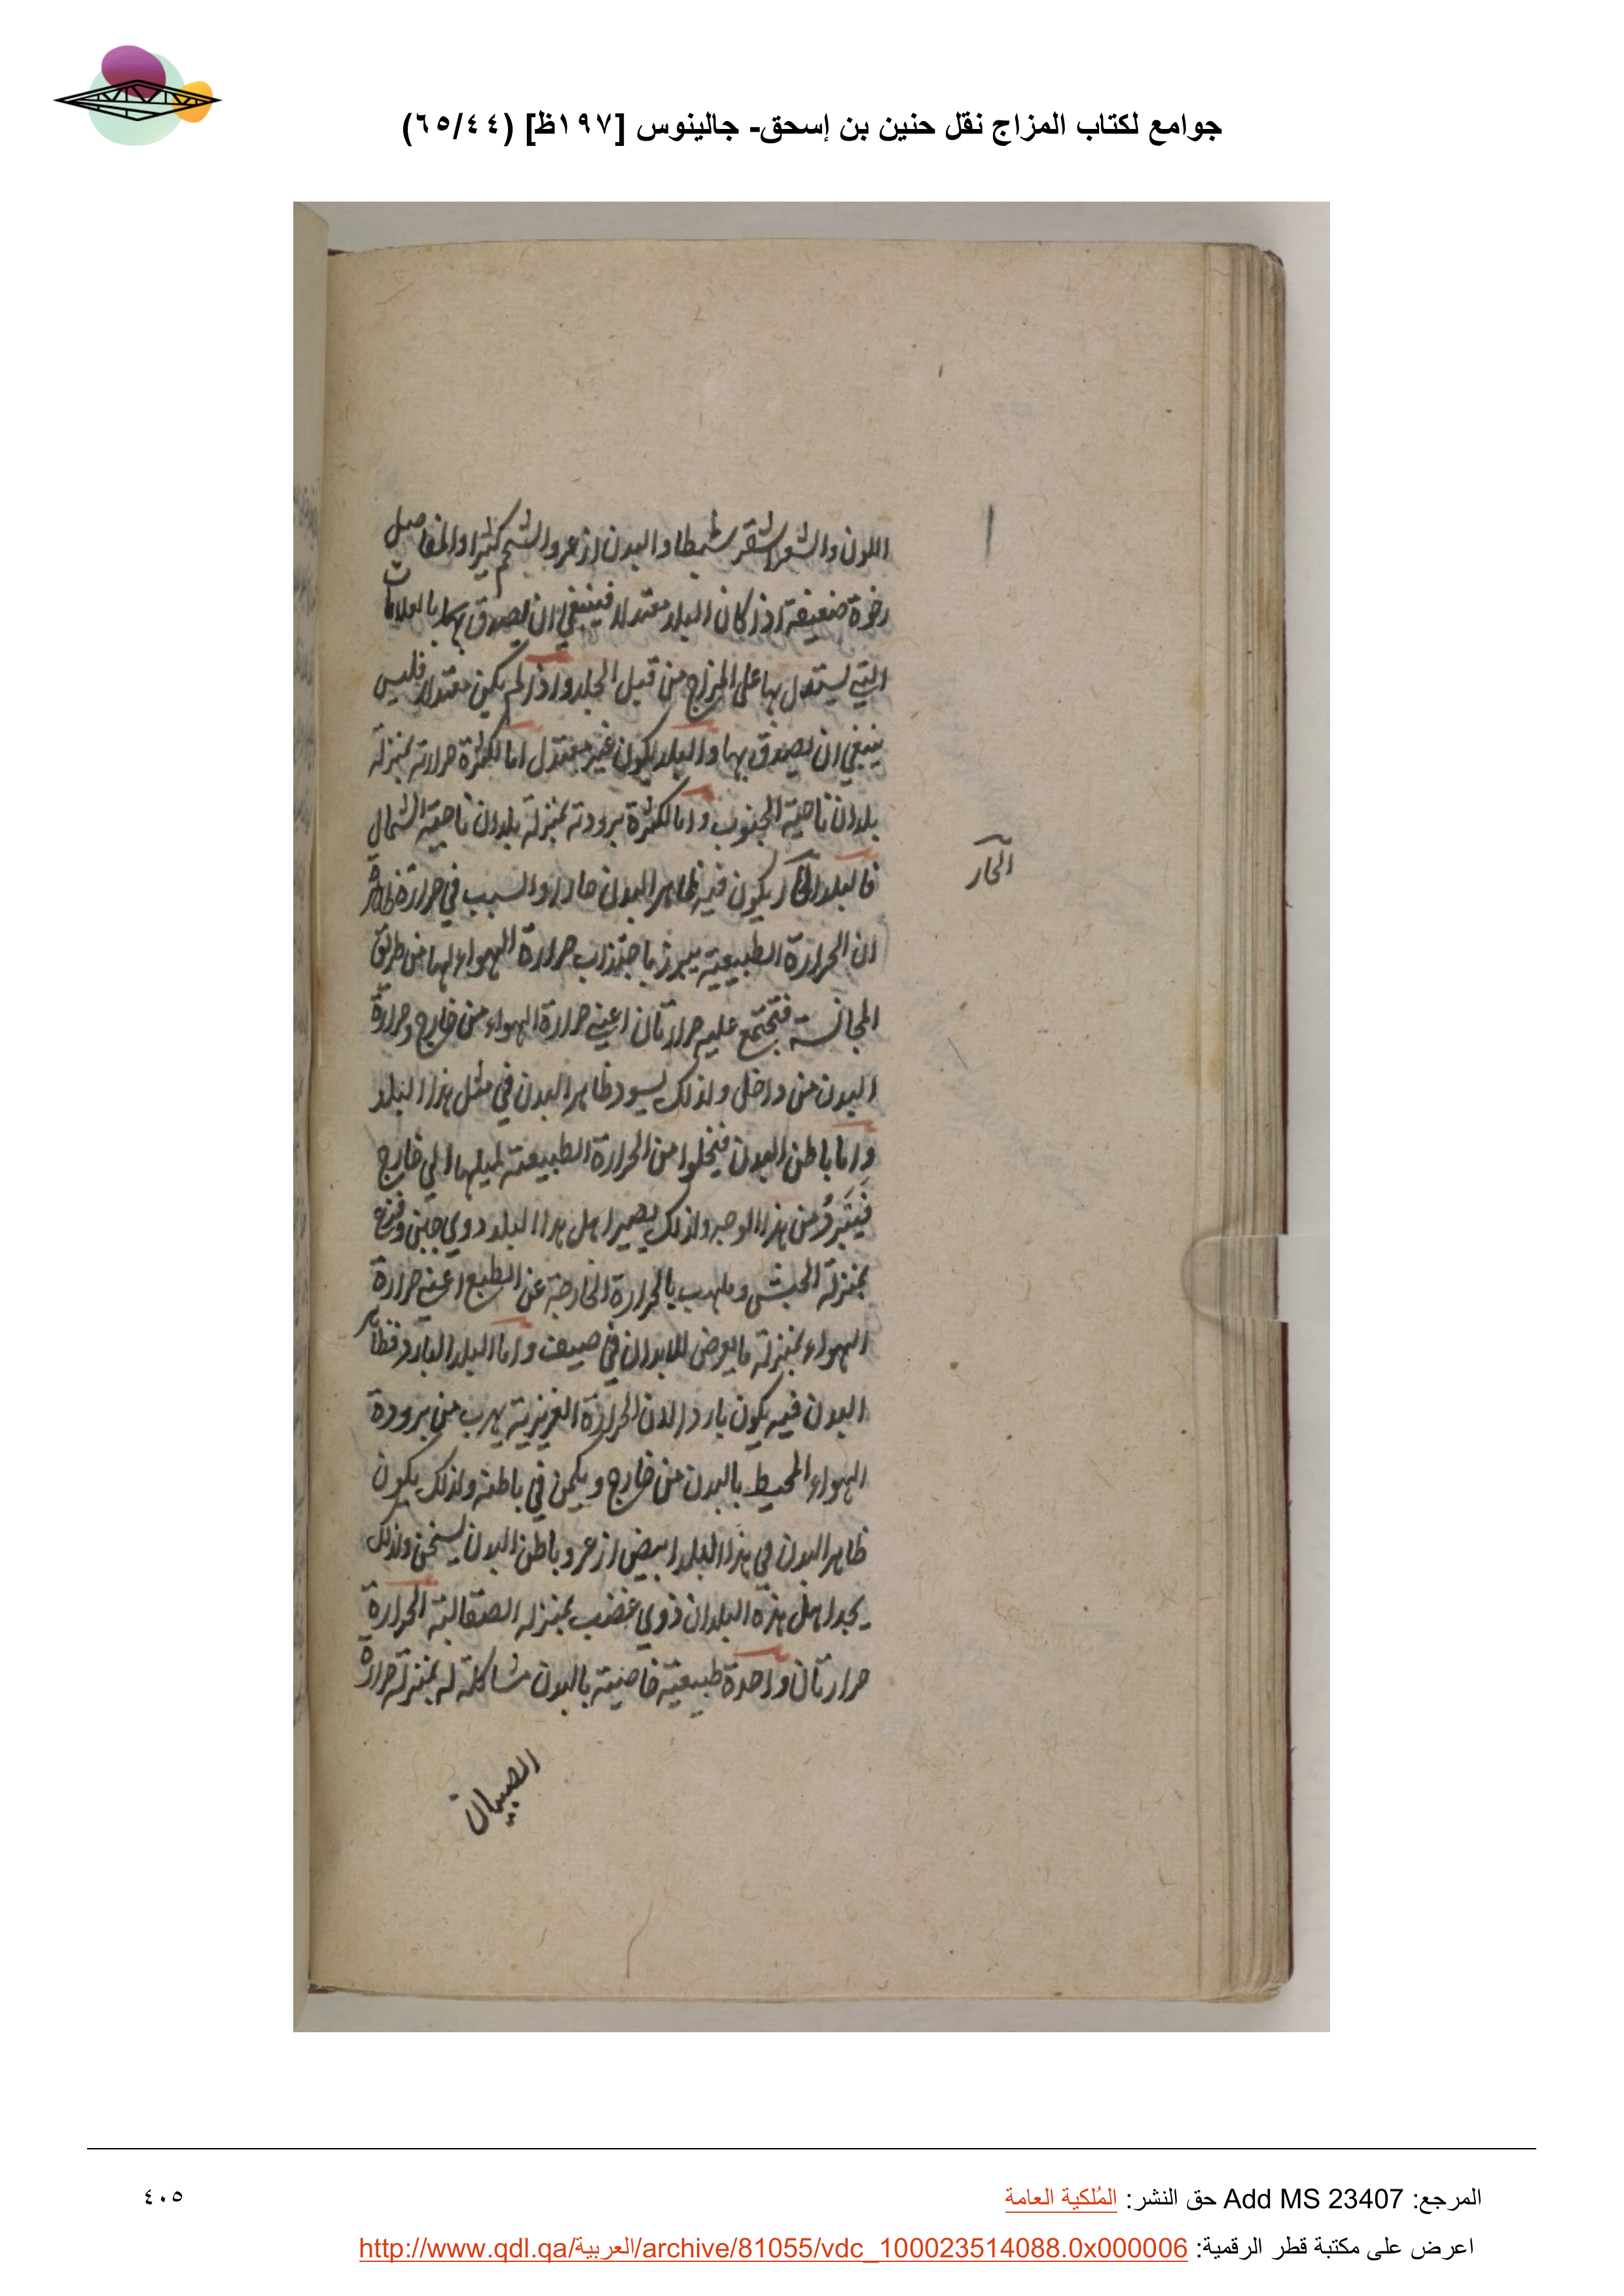 جوامع لكتاب المزاج نقل حنين بن إسحق- جالينوس [١٩٧ظ] (٦٥/٤٤)
اللون والشعر اشقر سبطا والبدن ازعر والشحم كثيرا والمفاصل
رخوة ضعيفة اذ كان البلد معتدلا فينبغي ان يصدق بهذا العلامات
التي يستدل بها على المزاج من قبل الجلد واذا لم يكن معتدلا فليس
ينبغي ان يصدق بها والبلد يكون غير معتدل اما لكثرة حرارته بمنزلة
بلدان ناحية الجنوب واما لكثرة برودته بمنزلة بلدان ناحية الشمال
فالبلد الحار يكون فيه ظاهر البدن حارا والسبب في حرارة ظاهره
الحار
ان الحرارة الطبيعية يبرز باجتذاب حرارة الهواء لها من طريق
المجانسة فتجتمع عليه حرارتان اعني حرارة الهواء من خارج وحرارة
البدن من داخل ولذلك يسود ظاهر البدن في مثل هذا البلد
واما باطن البدن فيخلوا من الحرارة الطبيعية لميلها الي خارج
فيتبرد من هذا الوجه ولذلك يصير اهل هذا البلد ذوي جبن وفزع
بمنزلة الحبش بالحرارة الخارجة عن الطبع اعني حرارة
الهواء بمنزلة ما يعرض للابدان في صيف واما البلد البارد فظاهر
البدن فيه يكون باردا لان الحرارة الغريزية يهرب من برودة
الهواء المحيط بالبدن من خارج ويكمن في باطنه ولذلك يكون
ظاهر البدن في هذا البلد ابيض ازعر وباطن البدن يسخن ولذلك
يجد اهل هذه البلدان ذوي غضب بمنزله الصقالبة الحرارة
حرارتان واحدة طبيعية خاصية بالبدن مشاكلة له بمنزلة حرارة
الصبيان
المرجع: Add MS 23407 حق النشر: المُلكية العامة
٤٠٥
اعرض على مكتبة قطر الرقمية: http://www.qdl.qa/العربية/archive/81055/vdc_100023514088.0x000006